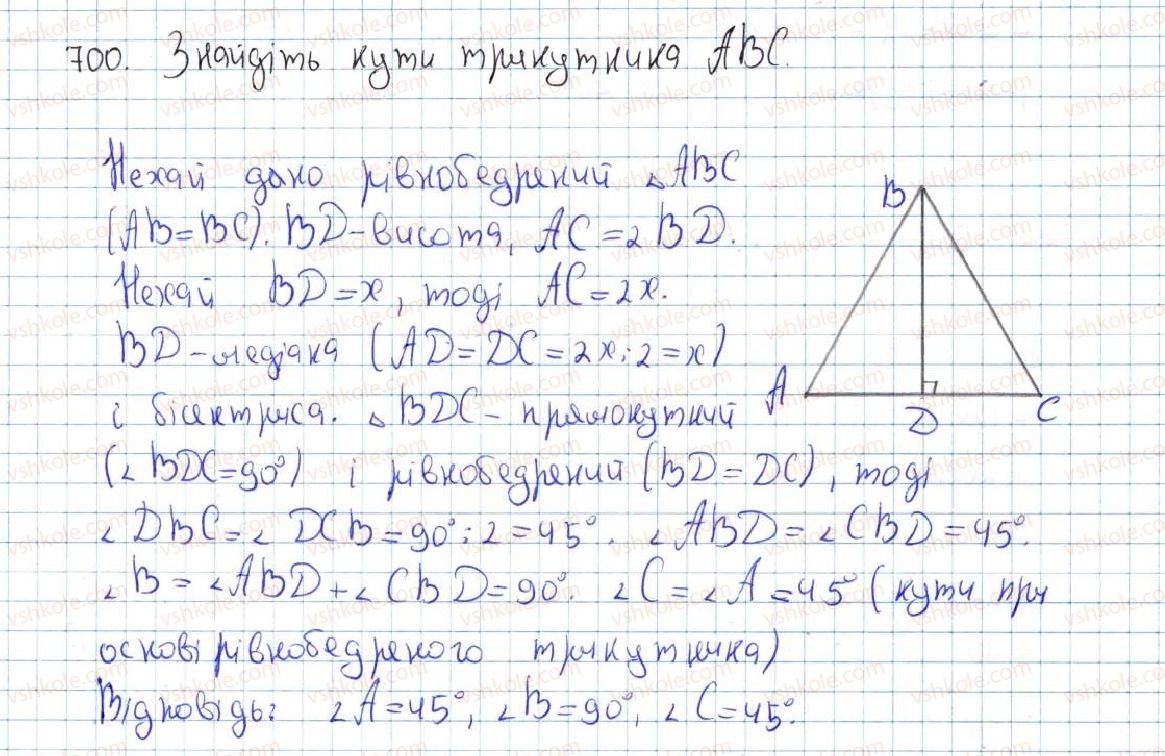 700. Знайдіть кути трикутника ABC.
Нехай дано рівнобедрений △ABC
(AB=BC). BD-висота, AC=2BD.
Нехай BD=x, тоді AC=2x.
BD-медіана (AD=DC=2x:2=x)
і бісектриса. △BDC- прямокутний
(∠BDC=90°) і рівнобедрений (BD=DC), тоді
∠DBC=∠DCB=90°:2=45°. ∠ABD=∠CBD=45°.
∠B=∠ABD+∠CBD=90°. ∠C=∠A=45° (кути при
основі рівнобедреного трикутника)
Відповідь: ∠A=45°, ∠B=90°, ∠C=45°.
B
A
D
C
vshkole.com